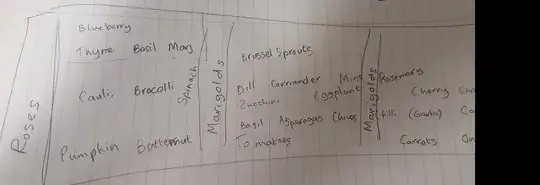 Roses
Blueberry
Thyme Basil Marj
Cauli, Brocolli
Spinach
Pumpkin Butternut
Marigolds
Brussel Sprouts
Dill Corriander Mint Rosemary
Zucchini Eggplant
Basil Asparagas Chives
Tomatoes
Marigolds
Cherry
(Garlic)
Carrots